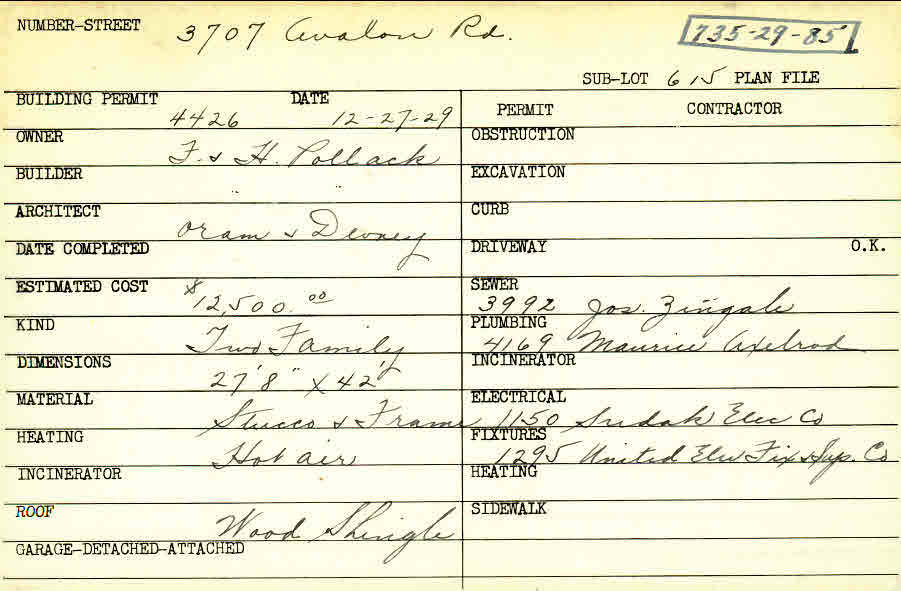 NUMBER-STREET 3707 Avalon Rd. 735-29-85
SUB-LOT 615 PLAN FILE
BUILDING PERMIT 4426 DATE 12-27-29
PERMIT CONTRACTOR
OWNER F. & H. Pollack
OBSTRUCTION
BUILDER " "
EXCAVATION
ARCHITECT Oram & Devney
CURB
DATE COMPLETED
DRIVEWAY O.K.
ESTIMATED COST $12,500.00
SEWER 3992 Jos. Zingale
KIND Two Family
PLUMBING 4169 Maurice Axelrod
DIMENSIONS 27'8" X 42'
INCINERATOR
MATERIAL Stucco & Frame
ELECTRICAL 1150 Sudak Elec Co
HEATING Hot air
FIXTURES 1295 United Elec Fix & Sup. Co
INCINERATOR
HEATING
ROOF Wood Shingle
SIDEWALK
GARAGE-DETACHED-ATTACHED